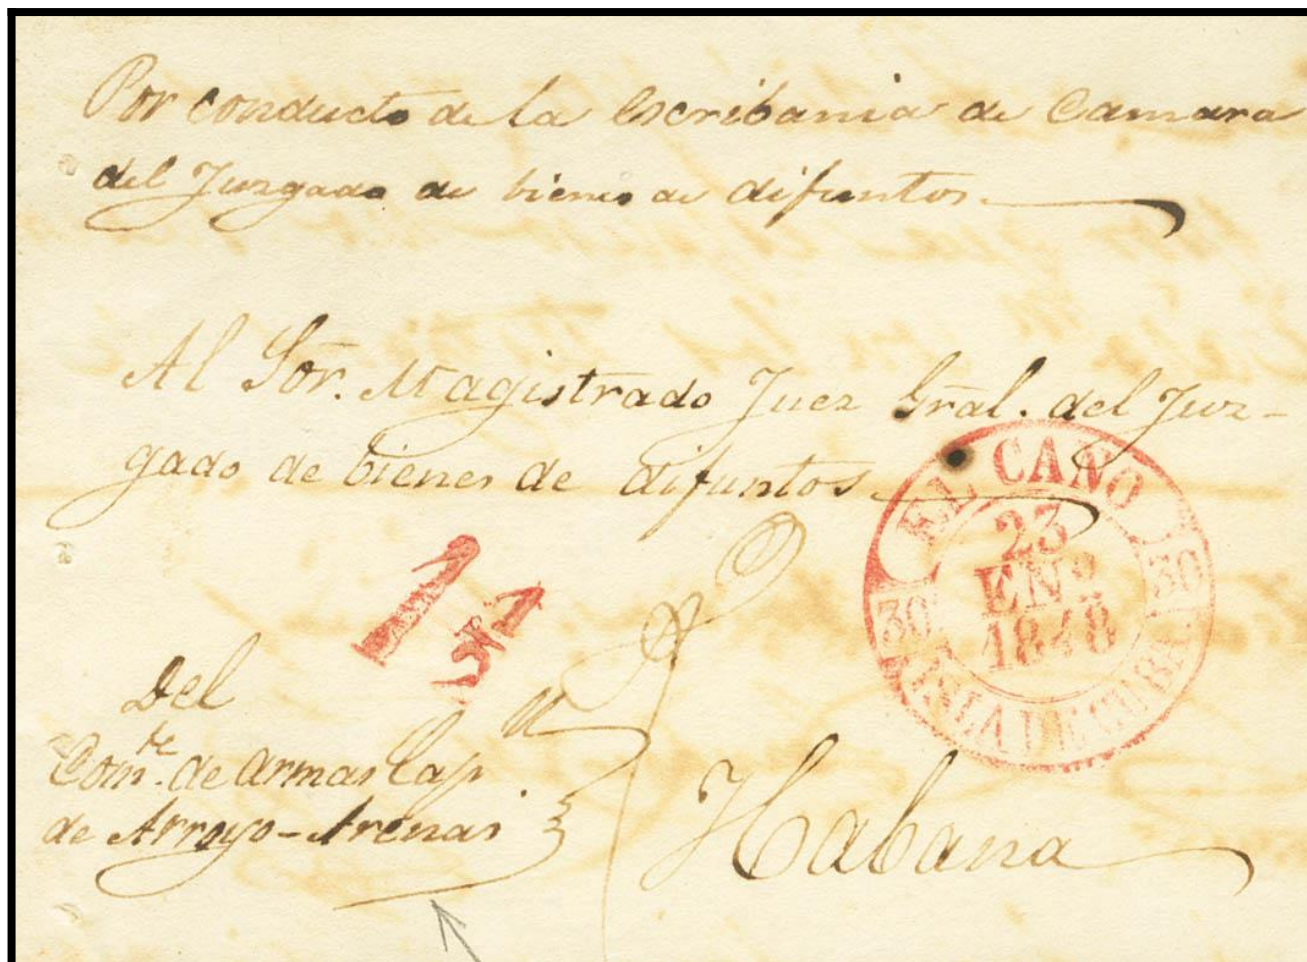 Por conducto de la Escribania de Camara
del Juzgado de bienes de difuntos.
Al Sor. Magistrado Juez Gral. del Juz-
gado de bienes de difuntos.
EL CANO
23
ENº
1848
30
30
ISLA DE CUBA
1 1/2
Del
Comte. de armas Cap.n
de Arroyo-Arenas
Habana